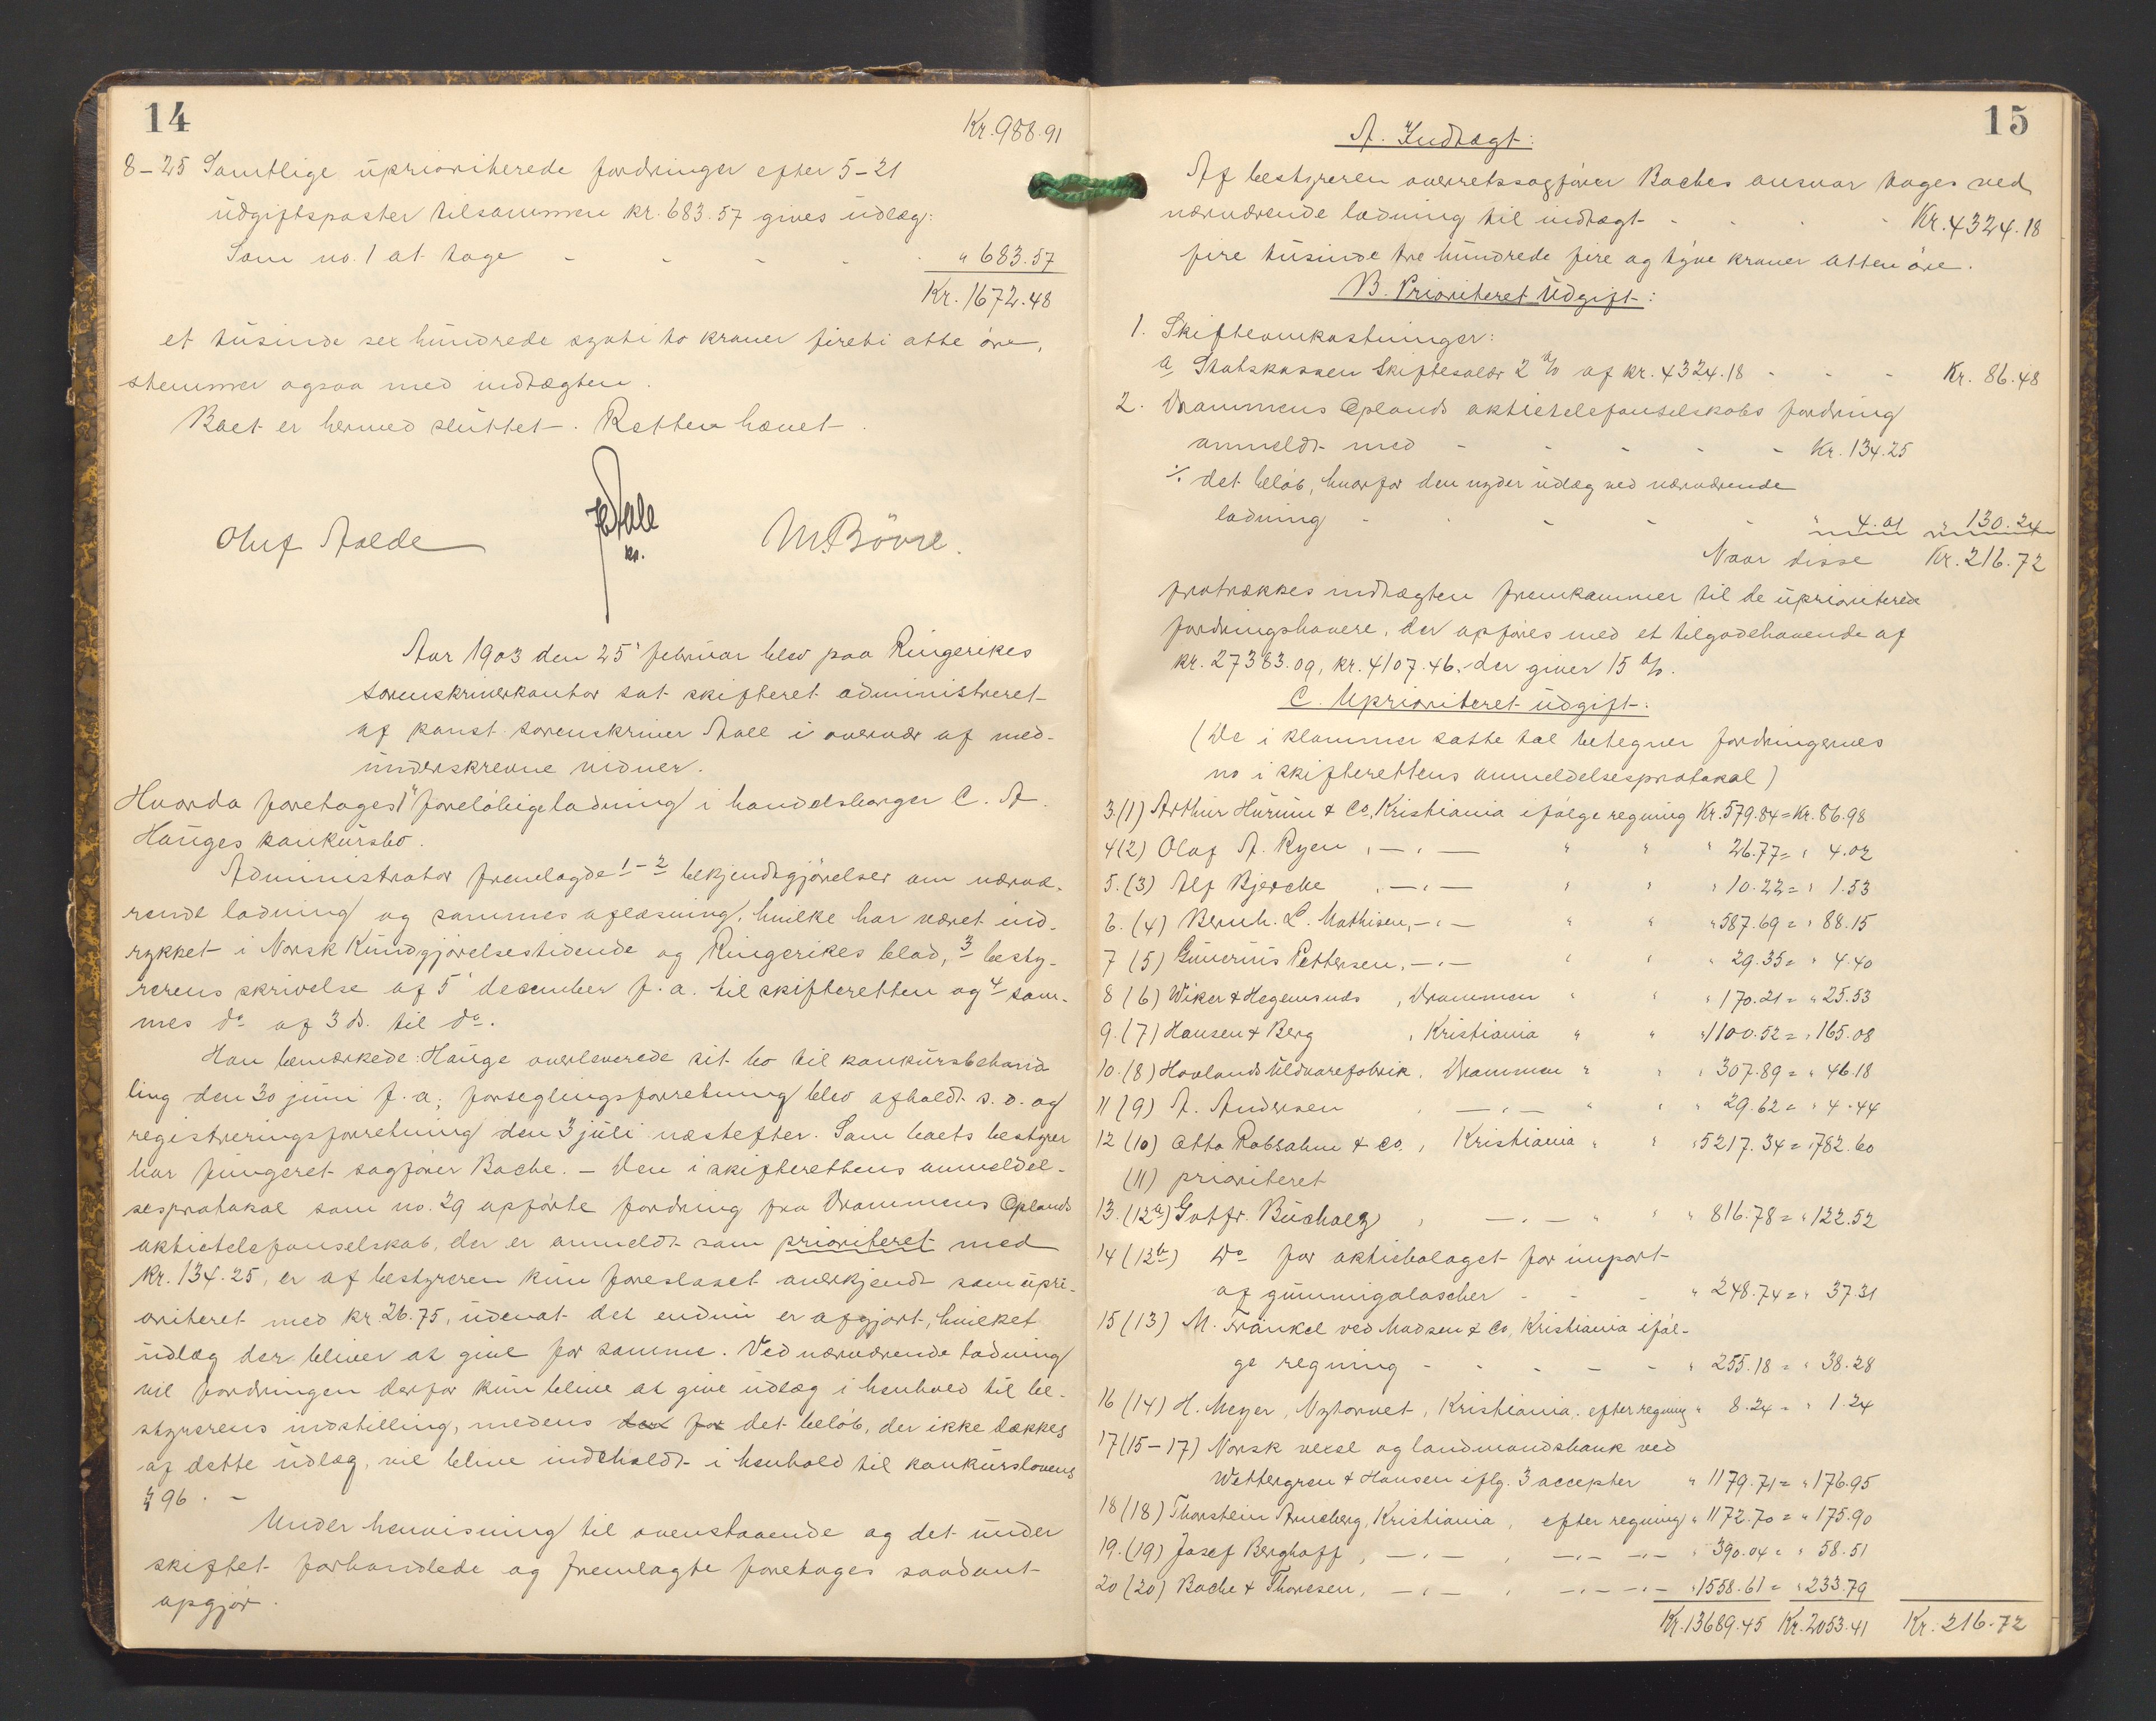 14
Kr. 988.91
8-25 Samtlige uprioriterede fordringer efter 5-21
udgiftsposter tilsammen kr. 683.57 gives udlæg:
Som no. 1 at tage - - - - " 683.57
Kr. 1672.48
et tusinde sex hundrede sytti to kroner firti otte øre,
stemmer ogsaa med indtægten.
Boet er hermed sluttet. Retten hævet.
Oluf Aalde
M. Bövre.
Aar 1903 den 25' februar blev paa Ringerikes
sorenskriverkontor sat skifteret administreret
af konst. sorenskriver Aall i overvær af med-
underskrevne vidner.
Hvorda foretoges 1' foreløbige lodning i handelsborger C. A.
Hauges konkursbo.
Administrator fremlagde 1-2 bekjendtgjørelser om nærvæ-
rende lodning og sammes oplæsning, hvilke har været ind-
rykket i Norsk Kundgjørelsestidende og Ringerikes blad, 3 besty-
rerens skrivelse af 5' december f.a. til skifteretten og 4 sam-
mes do af 3 ds. til do.
Han bemærkede: Hauge overleverede sit bo til konkursbehand
ling den 30 juni f.a.; forseglingsforretning blev afholdt s.d. og
registreringsforretning den 3 juli næstefter. Som boets bestyrer
har fungeret sagfører Bache. - Den i skifterettens anmeldel-
sesprotokol som no. 29 opførte fordring fra Drammens Oplands
aktietelefonselskab, der er anmeldt som prioriteret med
kr. 134.25, er af bestyreren kun foreslaaet anerkjendt som upri-
oriteret med kr. 26.75, udenat det endnu er afgjort, hvilket
udlæg der bliver at give for samme. Ved nærværende lodning
vil fordringen derfor kun blive at give udlæg i henhold til be-
styrerens indstilling, medens det beløb, der ikke dækkes
af dette udlæg, vil blive indeholdt i henhold til konkurslovens
§ 96. -
Under henvisning til ovenstaaende og det under
skiftet forhandlede og fremlagte foretoges saadant
opgjør.
15
A. Indtægt:
Af bestyreren overretssagfører Baches ansvar tages ved
nærværende lodning til indtægt - - - - Kr. 4324.18
fire tusinde tre hundrede fire og tyve kroner atten øre.
B. Prioriteret Udgift:
1. Skifteomkostninger:
a Statskassen Skiftesalær 2 % af kr. 4324.18 - - - Kr. 86.48
2. Drammens Oplands aktietelefonselskabs fordring
anmeldt med - - - - - Kr. 134.25
÷ det beløb, hvorfor den nyder udlæg ved nærværende
lodning - - - - - " 4.01 " 130.24
Naar disse Kr. 216.72
fratrækkes indtægten fremkommer til de uprioriterede
fordringshavere, der opføres med et tilgodehavende af
kr. 27383.09, kr. 4107.46, der giver 15 %.
C. Uprioriteret udgift:
(De i klammer satte tal betegner fordringernes
no i skifterettens anmeldelsesprotokol)
3. (1) Arthur Hurum & Co, Kristiania ifølge regning Kr. 579.84 = Kr. 86.98
4 (2) Olaf A. Ryen , -"- " " " 26.77 = " 4.02
5. (3) Alf Bjercke , -"- " " " 10.22 = " 1.53
6. (4) Bernh. L. Mathisen, -"- " " " 587.69 = " 88.15
7 (5) Gunerius Pettersen, -"- " " " 29.35 = " 4.40
8 (6) Wiker & Hegemsnds , Drammen " " " 170.21 = " 25.53
9. (7) Hansen & Berg , Kristiania " " " 1100.52 = " 165.08
10. (8) Hovlands Uldvarefabrik, Drammen " " " 307.89 = " 46.18
11 (9) A. Andersen , -"- " " " 29.62 = " 4.44
12 (10) Otto Robsahm & Co. , Kristiania " " " 5217.34 = " 782.60
(11) prioriteret
13. (12a) Gotfr. Bucholz , -"- " " " 816.78 = " 122.52
14 (12b) Do for aktiebolaget for import
af gummigaloscher - - - " 248.74 = " 37.31
15 (13) M. Fränkel ved Madsen & Co, Kristiania iføl-
ge regning - - - - - " 255.18 = " 38.28
16 (14) H. Meyer, Nytorvet, Kristiania, efter regning " 8.24 = " 1.24
17 (15-17) Norsk vexel og landmandsbank ved
Wettergren & Hansen iflg. 3 accepter " 1179.71 = " 176.95
18 (18) Thorstein Arneberg, Kristiania, efter regning " 1172.70 = " 175.90
19. (19) Josef Berghoff , -"- , -"- -"- " 390.04 = " 58.51
20 (20) Bache & Thoresen, -"- , -"- -"- " 1558.61 = " 233.79
Kr. 13689.45 Kr. 2053.41 Kr. 216.72